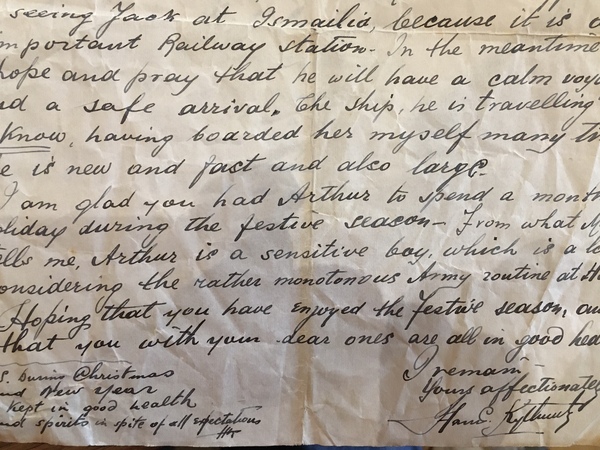 seeing Jack at Ismailia, because it is
important Railway station - In the meantime
hope and pray that he will have a calm voy
nd a safe arrival. The ship, he is travelling
know, having boarded her myself many
e is new and fast and also large.
I am glad you had Arthur to spend a month
oliday during the festive season - From what
ells me, Arthur is a sensitive boy, which is a
onsidering the rather monotonous Army routine at
Hoping that you have enjoyed the festive season, an
that you with your dear ones are all in good hea
I remain -
Yours affectionately
S. During Christmas
nd New Year
kept in good health
nd spirits in spite of all expectations